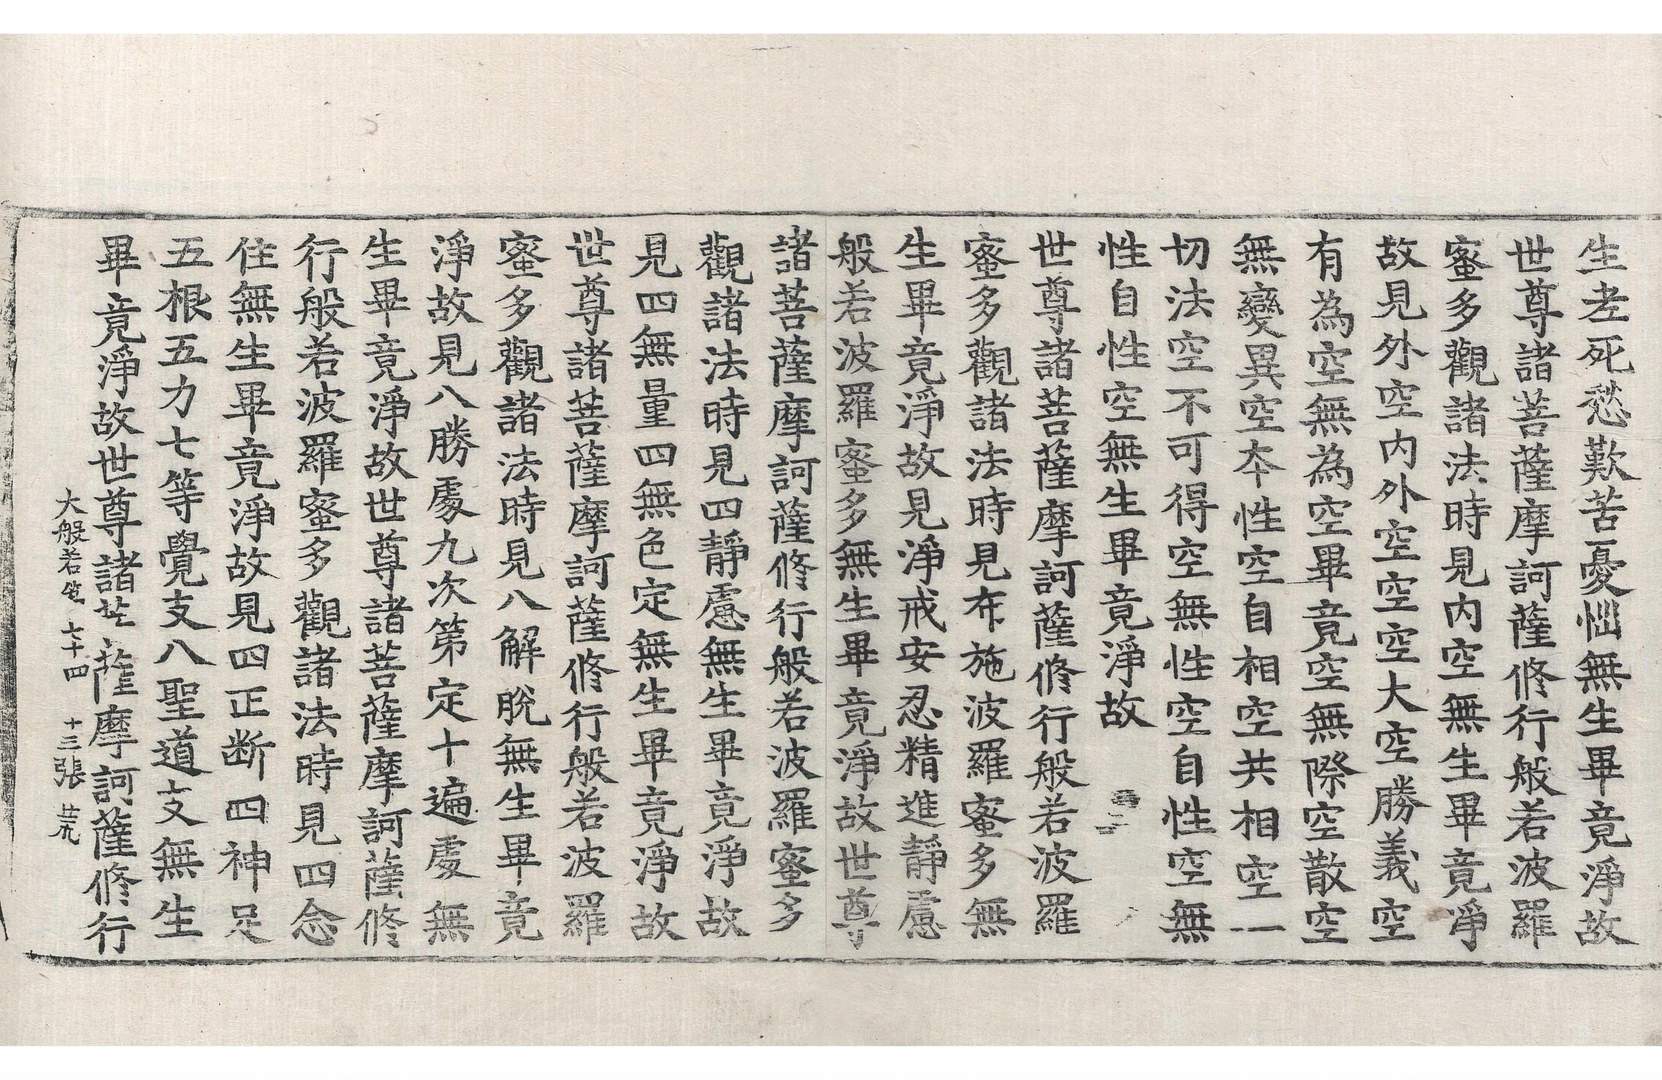 生老死愁歎苦憂惱無生畢竟淨故
世尊諸菩薩摩訶薩修行般若波羅
蜜多觀諸法時見内空無生畢竟淨
故見外空内外空空空大空勝義空
有為空無為空畢竟空無際空散空
無變異空本性空自相空共相空一
切法空不可得空無性空自性空無
性自性空無生畢竟淨故
世尊諸菩薩摩訶薩修行般若波羅
蜜多觀諸法時見布施波羅蜜多無
生畢竟淨故見淨戒安忍精進靜慮
般若波羅蜜多無生畢竟淨故世尊
諸菩薩摩訶薩修行般若波羅蜜多
觀諸法時見四靜慮無生畢竟淨故
見四無量四無色定無生畢竟淨故
世尊諸菩薩摩訶薩修行般若波羅
蜜多觀諸法時見八解脫無生畢竟
淨故見八勝處九次第定十遍處無
生畢竟淨故世尊諸菩薩摩訶薩修
行般若波羅蜜多觀諸法時見四念
住無生畢竟淨故見四正断四神足
五根五力七等覺支八聖道支無生
畢竟淨故世尊諸菩薩摩訶薩修行
大般若 七十四 十三張